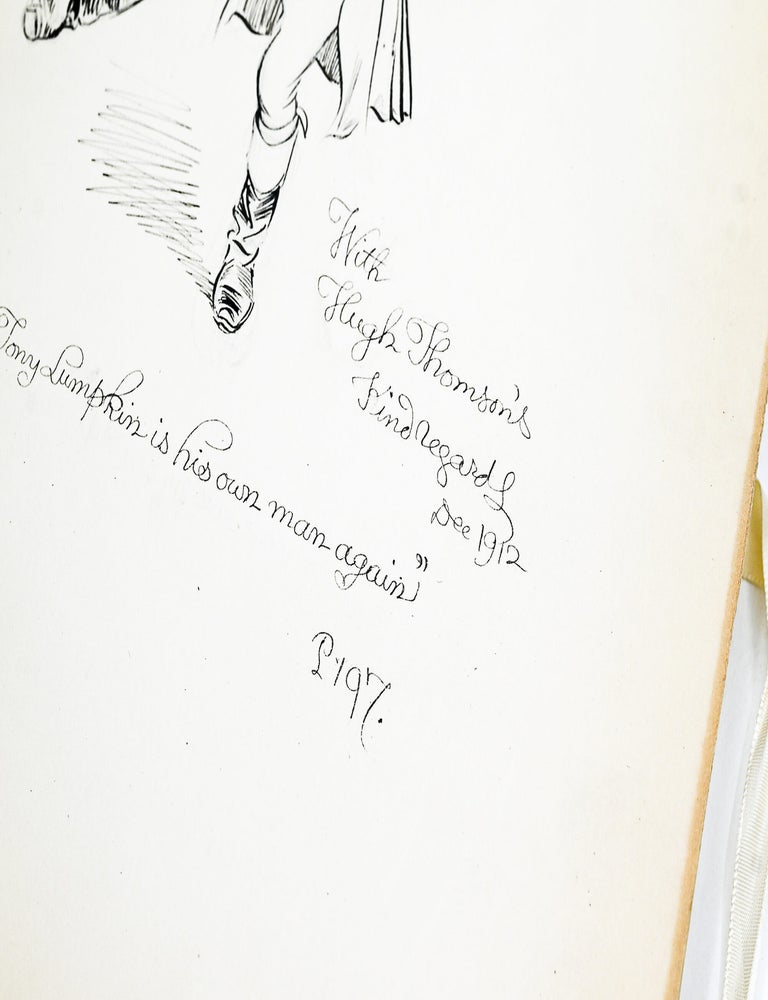 With
Hugh Thomson's
Kind regards
Dec 1912
Tony Lumpkin is his own man again"
P197.